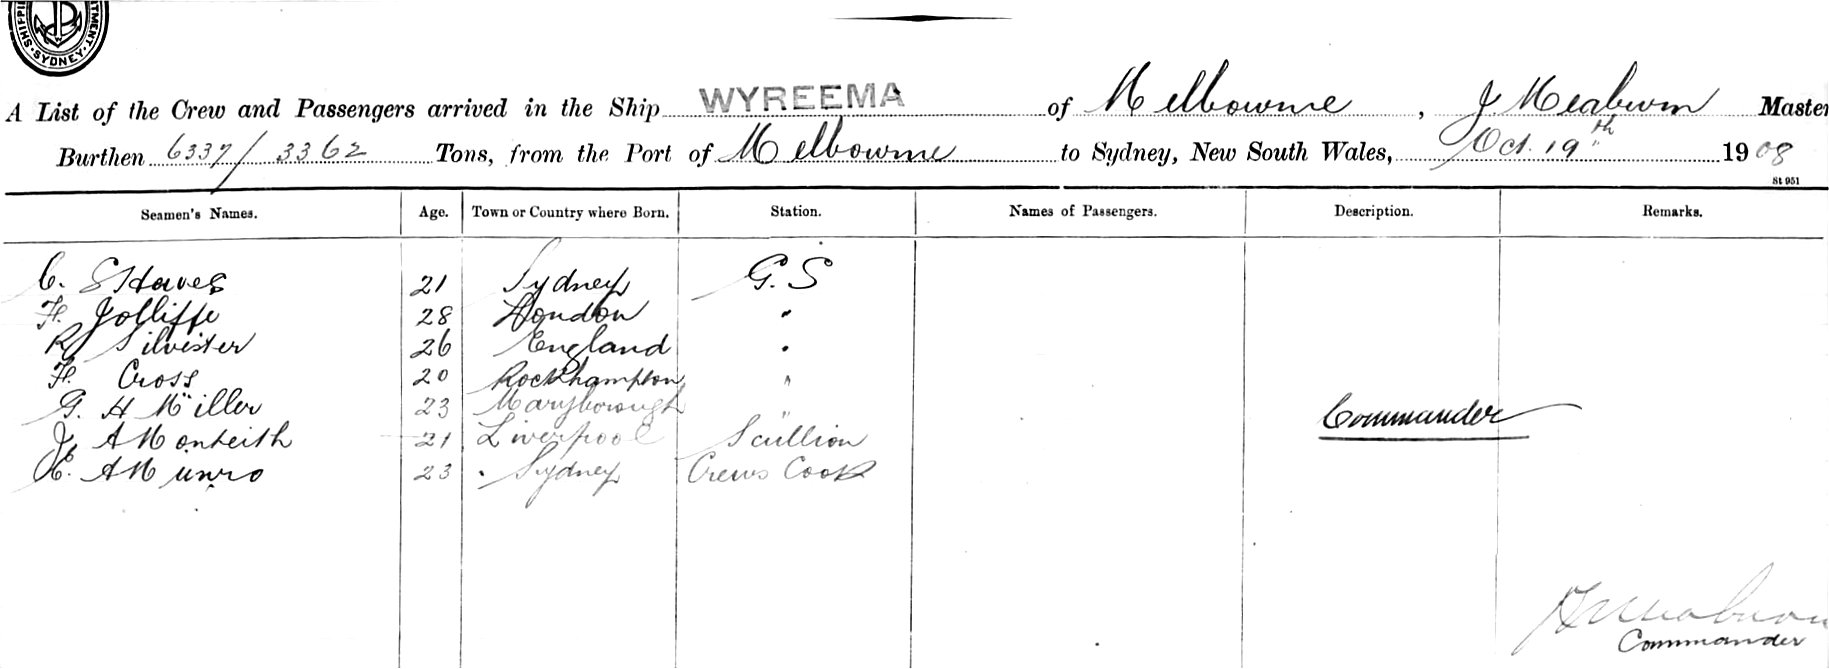 SHIPPI TMENT. SYDNEY.
A List of the Crew and Passengers arrived in the Ship WYREEMA of Melbourne, J Meaburn Master
Burthen 6337/3362 Tons, from the Port of Melbourne to Sydney, New South Wales, Oct. 19th 1908
St 951
Seamen's Names. Age. Town or Country where Born. Station. Names of Passengers. Description. Remarks.
C. S Hawes 21 Sydney G.S
F. Jolliffe 28 London "
R Silvister 26 England "
F. Cross 20 Rockhampton "
G. H Miller 23 Maryborough "
Commander
J. A Monteith 21 Liverpool Scullion
A Munro 23 Sydney Crews Cook
Commander